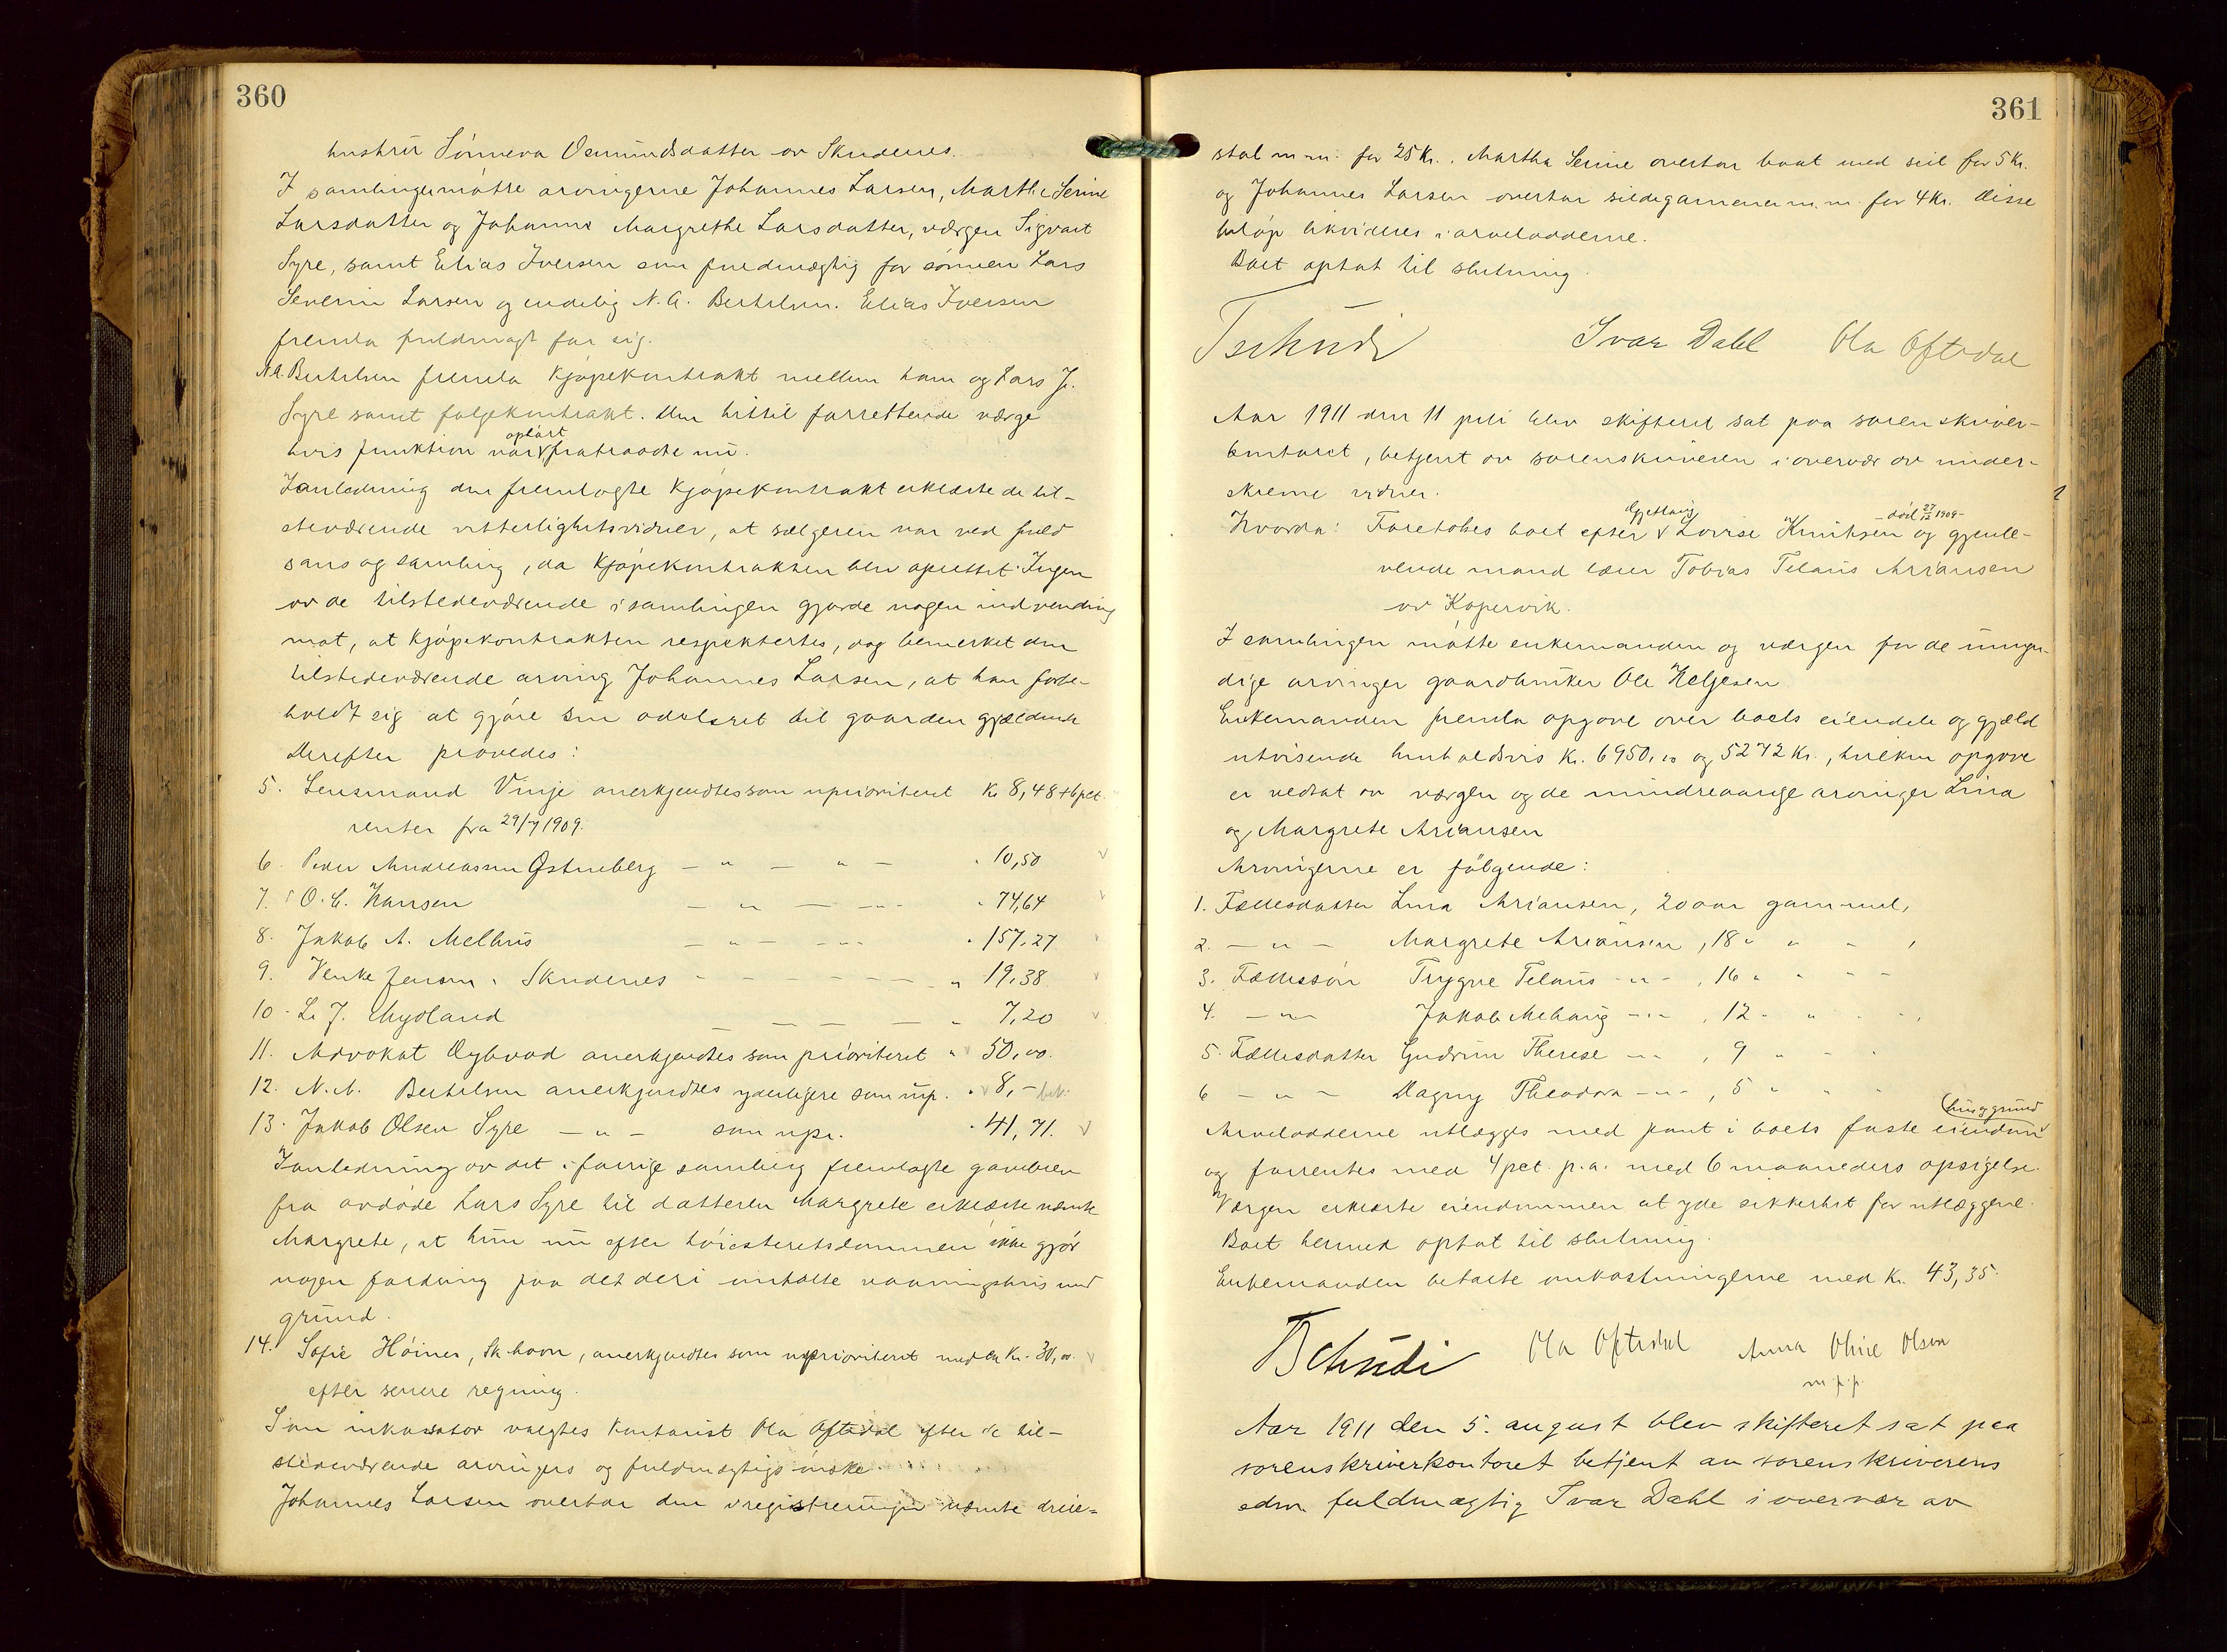 360
hustru Sönneva Osmundsdatter av Skudenes.
I samlingen mötte arvingerne Johannes Larsen, Martha Serine
Larsdatter og Johanne Margrethe Larsdatter, værgen Sigvart
Syre, samt Elias Iversen som fuldmægtig for sönnen Lars
Severin Larsen og endelig N. A. Bertelsen. Elias Iversen
fremla fuldmagt for sig.
N.A. Bertelsen fremla kjöpekontrakt mellem ham og Lars J.
Syre samt følgekontrakt. Den hittil forrettende værge
hvis funktion var ophört fratraadte nu.
I anledning den fremlagte kjöpekontrakt erklærte de til-
steværende vitterlighetsvidner, at sælgeren var ved fuld
sans og samling, da kjöpekontrakten blev oprettet. Ingen
av de tilstedeværende i samlingen gjorde nogen indvending
mot, at kjöpekontrakten respektertes, dog bemerket den
tilstedeværende arving Johannes Larsen, at han forbe-
holdt sig at gjöre sin odelsret til gaarden gjældende
Derefter prövedes:
5. Lensmand Vinje anerkjendtes som uprioritert Kr 8,48 + 6 pct.
renter fra 29/7 1909.
6. Peder Andreassen Østneberg — " — " — " 10,50
7. O. C. Hansen — " — " — " 74,64
8. Jakob A. Melhus — " — " — " 157,27
9. Henke Jensen, Skudenes - - - - - " 19,38
10. L. J. Mydland — — — — " 7,20
11. Advokat Öghvad anerkjendtes som prioriteret " 50,00.
12. N. A. Bertelsen anerkjendtes yderligere som up. " 8,-
13. Jakob Olsen Syre — " — som upr. " 41,71.
I anledning av det i forrige samling fremlagte gavebrev
fra avdöde Lars Syre til datteren Margrete erklærte nævnte
Margrete, at hun nu efter höiesteretsdommen ikke gjör
nogen fordring paa det deri omtalte vaaningshus med
grund.
14. Sofie Höiner, Sk.havn, anerkjendtes som uprioriteret med Kr. 30,00.
efter senere regning.
Som inkassator valgtes kontorist Ola Oftedal efter de til-
stedeværende arvingers og fuldmægtigs önske.
Johannes Larsen overtar den i registreringen nævnte dreie-
361
stol m.m. for 25 Kr., Martha Serine overtar baat med seil for 5 Kr.
og Johannes Larsen overtar sildegarnene m.m. for 4 Kr. Disse
belöp likvideres i arvelodderne.
Boet optat til slutning.
Tschudi Ivar Dahl Ola Oftedal
Aar 1911 den 11 juli blev skifteret sat paa sorenskriver-
kontoret, betjent av sorenskriveren i overvær av under-
skrevne vidner.
Hvorda: Foretokes boet efter Lovise Knutsen - död 27/12 1909 - og gjenle-
vende mand Tobias Telaus Ariansen
av Kopervik.
I samlingen mötte enkemanden og værgen for de umyn-
dige arvinger gaardbruker Ole Heljesen
Enkemanden fremla opgave over boets eiendele og gjæld
utvisende henholdsvis Kr. 6950,00 og 5272 Kr., hvilken opgave
er vedtat av værgen og de mindreaarige arvinger Lina
og Margrete Ariansen
Arvingerne er fölgende:
1. Fællesdatter Lina Ariansen, 20 aar gammel,
2. — " — Margrete Ariansen, 18 " " - ,
3. Fællessön Trygve Telaus - " - , 16 " " - -
4. — " — Jakob Mehaug - " - , 12 " " - - ,
5. Fællesdatter Gudrun Therese - " - , 9 " - -
6 — " — Dagny Theodora - " - , 5 " - -
Arvelodderne utlægges med pant i boets faste eiendom (hus og grund)
og forrentes med 4 pct. p.a. med 6 maaneders opsigelse.
Værgen erklærte eiendommen at yde sikkerhet for utlæggene.
Boet hermed optat til slutning.
Enkemanden betalte omkostningerne med Kr. 43,35.
Tschudi Ola Oftedal Anna Olsen
m.p.p.
Aar 1911 den 5. august blev skifteret sat paa
sorenskriverkontoret betjent av sorenskriverens
edsv. fuldmægtig Ivar Dahl i overvær av